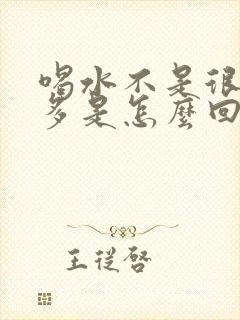 喝水不是很
多是怎麼回
王從啓